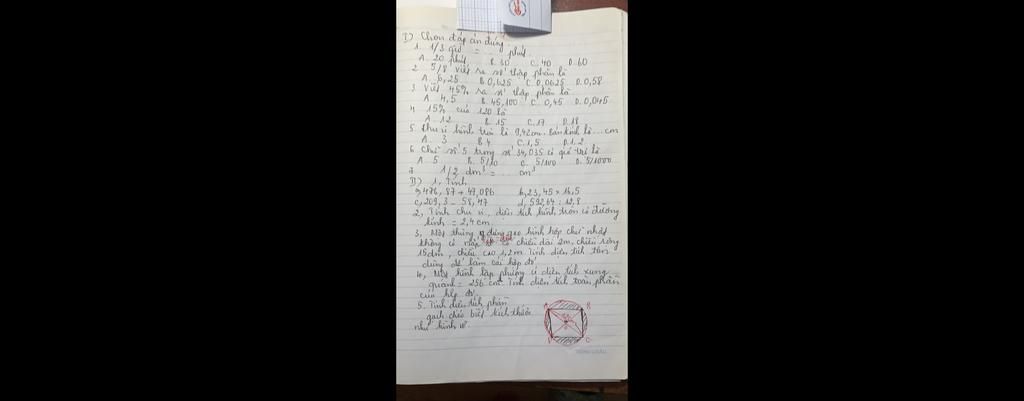 I) Chọn đáp án đúng.
1. 1/3 giờ = ... phút.
A. 20 phút B. 30 C. 40 D. 60
2. 5/8 viết ra số thập phân là
A. 6,25 B. 0,625 C. 0,0625 D. 0,58
3. Viết 45% ra số thập phân là
A. 4,5 B. 45,100 C. 0,45 D. 0,045
4. 15% của 120 là
A. 12 B. 15 C. 17 D. 18
5. Chu vi hình tròn là 9,42cm. Bán kính là ... cm
A. 3 B. 4 C. 1,5 D. 1,2
6. Chữ số 5 trong số 34,035 có giá trị là
A. 5 B. 5/10 C. 5/100 D. 5/1000
7. 1/2 dm³ = ... cm³
II) 1, Tính
a, 476,87 + 47,086 b, 23,45 x 16,5
c, 209,3 - 58,47 d, 592,64 : 12,8
2, Tính chu vi, diện tích hình tròn có đường
kính = 2,4 cm.
3, Một thùng đựng gạo hình hộp chữ nhật
không có nắp có chiều dài 2m, chiều rộng
15dm, chiều cao 1,2m. Tính diện tích tôn
dùng để làm cái hộp đó.
4, Một hình lập phương có diện tích xung
quanh = 256 cm². Tính diện tích toàn phần
của hlp đó.
5. Tính diện tích phần
gạch chéo biết kích thước
như hình vẽ.
A B
D C